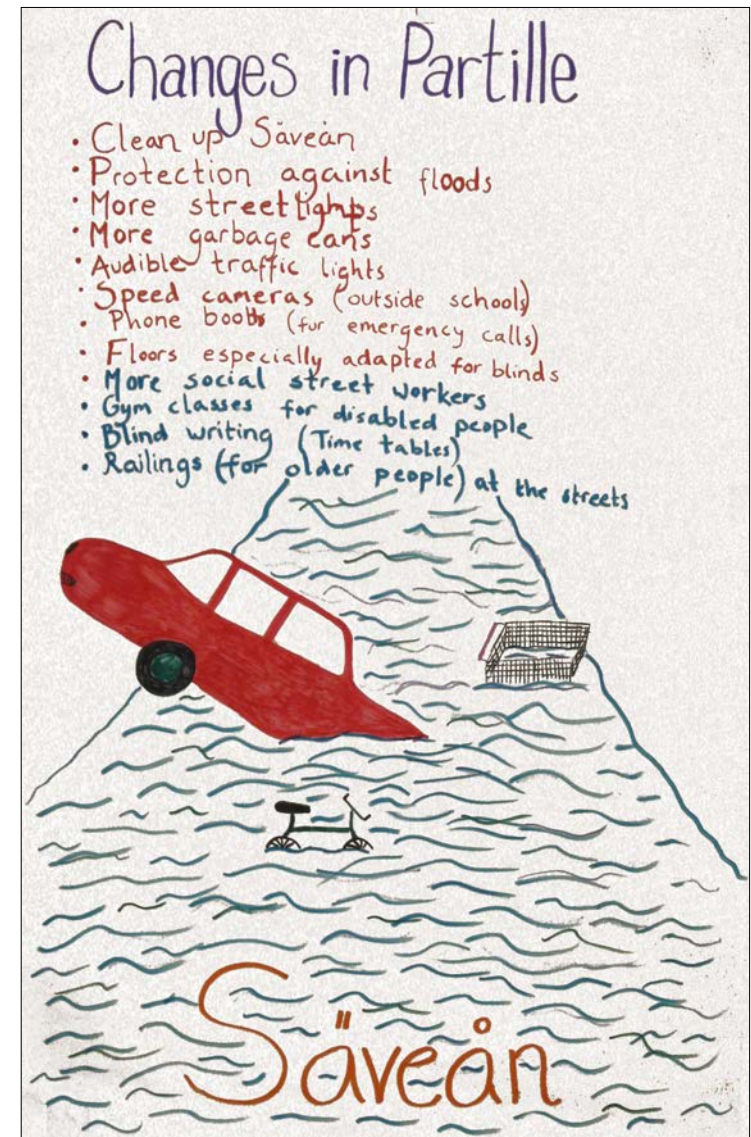 Changes in Partille
• Clean up Säveån
• Protection against floods
• More streetlights
• More garbage cans
• Audible traffic lights
• Speed cameras (outside schools)
• Phone booths (for emergency calls)
• Floors especially adapted for blinds
• More social street workers
• Gym classes for disabled people
• Blind writing (Time tables)
• Railings (for older people) at the streets
Säveån